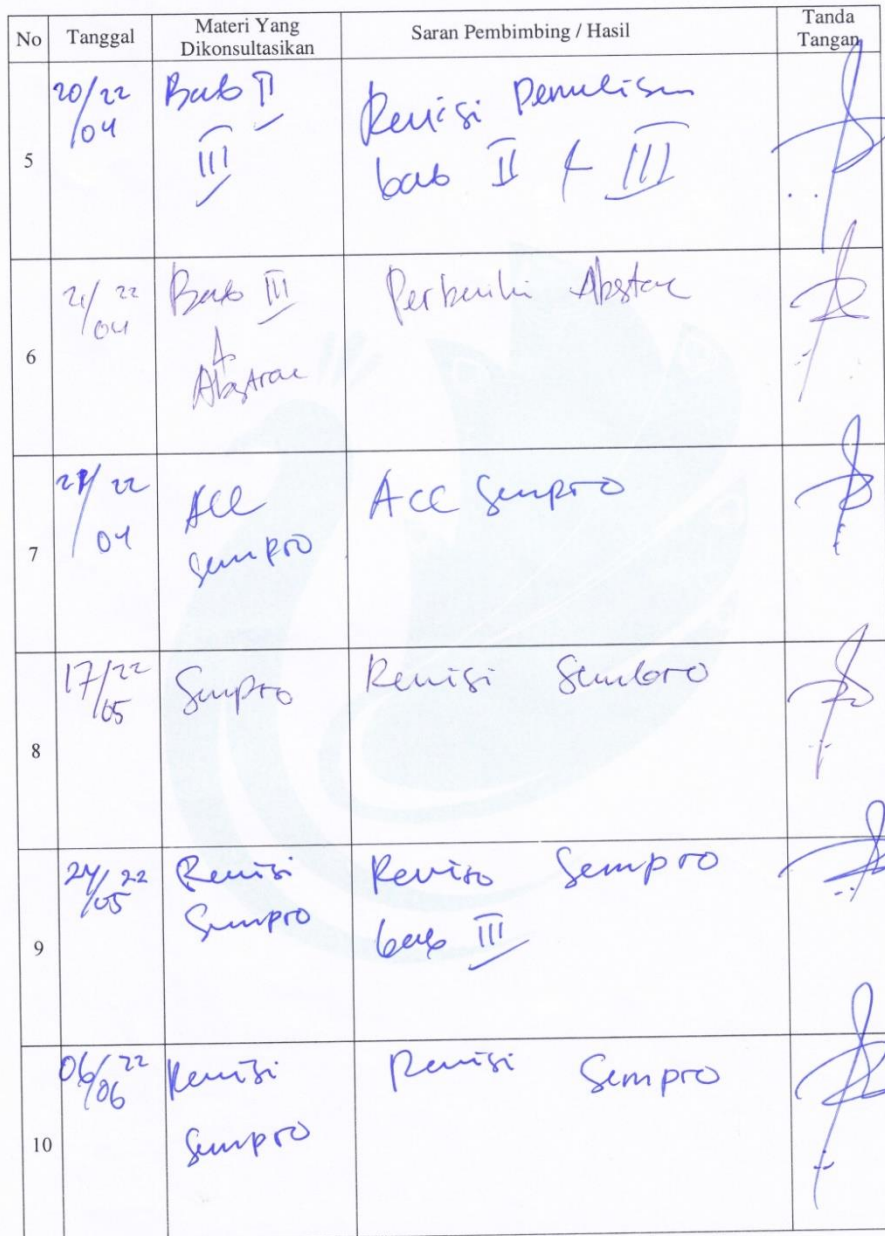 No Tanggal Materi Yang Dikonsultasikan Saran Pembimbing / Hasil Tanda Tangan
5 20/04 22 Bab II Revisi Penulisan
III bab II & III
6 21/04 22 Bab III Perbaiki Abstrac
&
Abstrac
7 22 Acc Acc Sempro
04 sempro
8 17/05 22 Sempro Revisi Sempro
9 24/05 22 Revisi Reviso Sempro
Sempro bab III
10 06/06 22 Revisi Revisi Sempro
Sempro